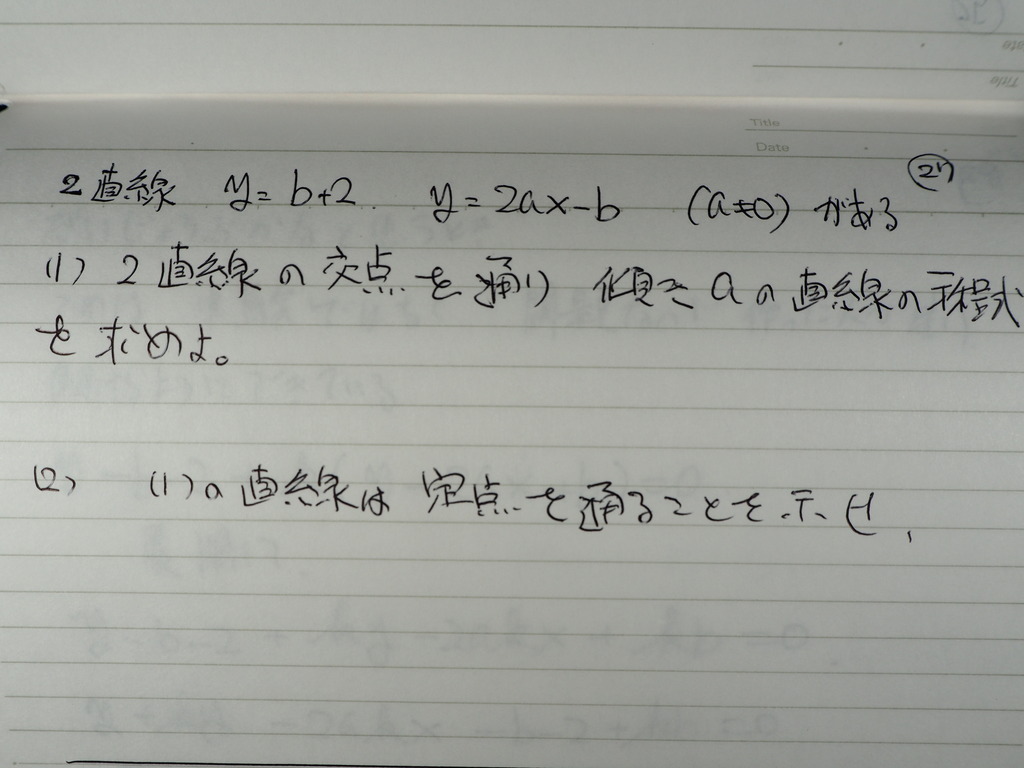 Title
Date
27
2直線 y=b+2. y=2ax-b (a≠0) がある
(1) 2直線の交点を通り 傾きaの直線の方程式
を求めよ。
(2) (1)の直線は 定点を通ることを示せ.